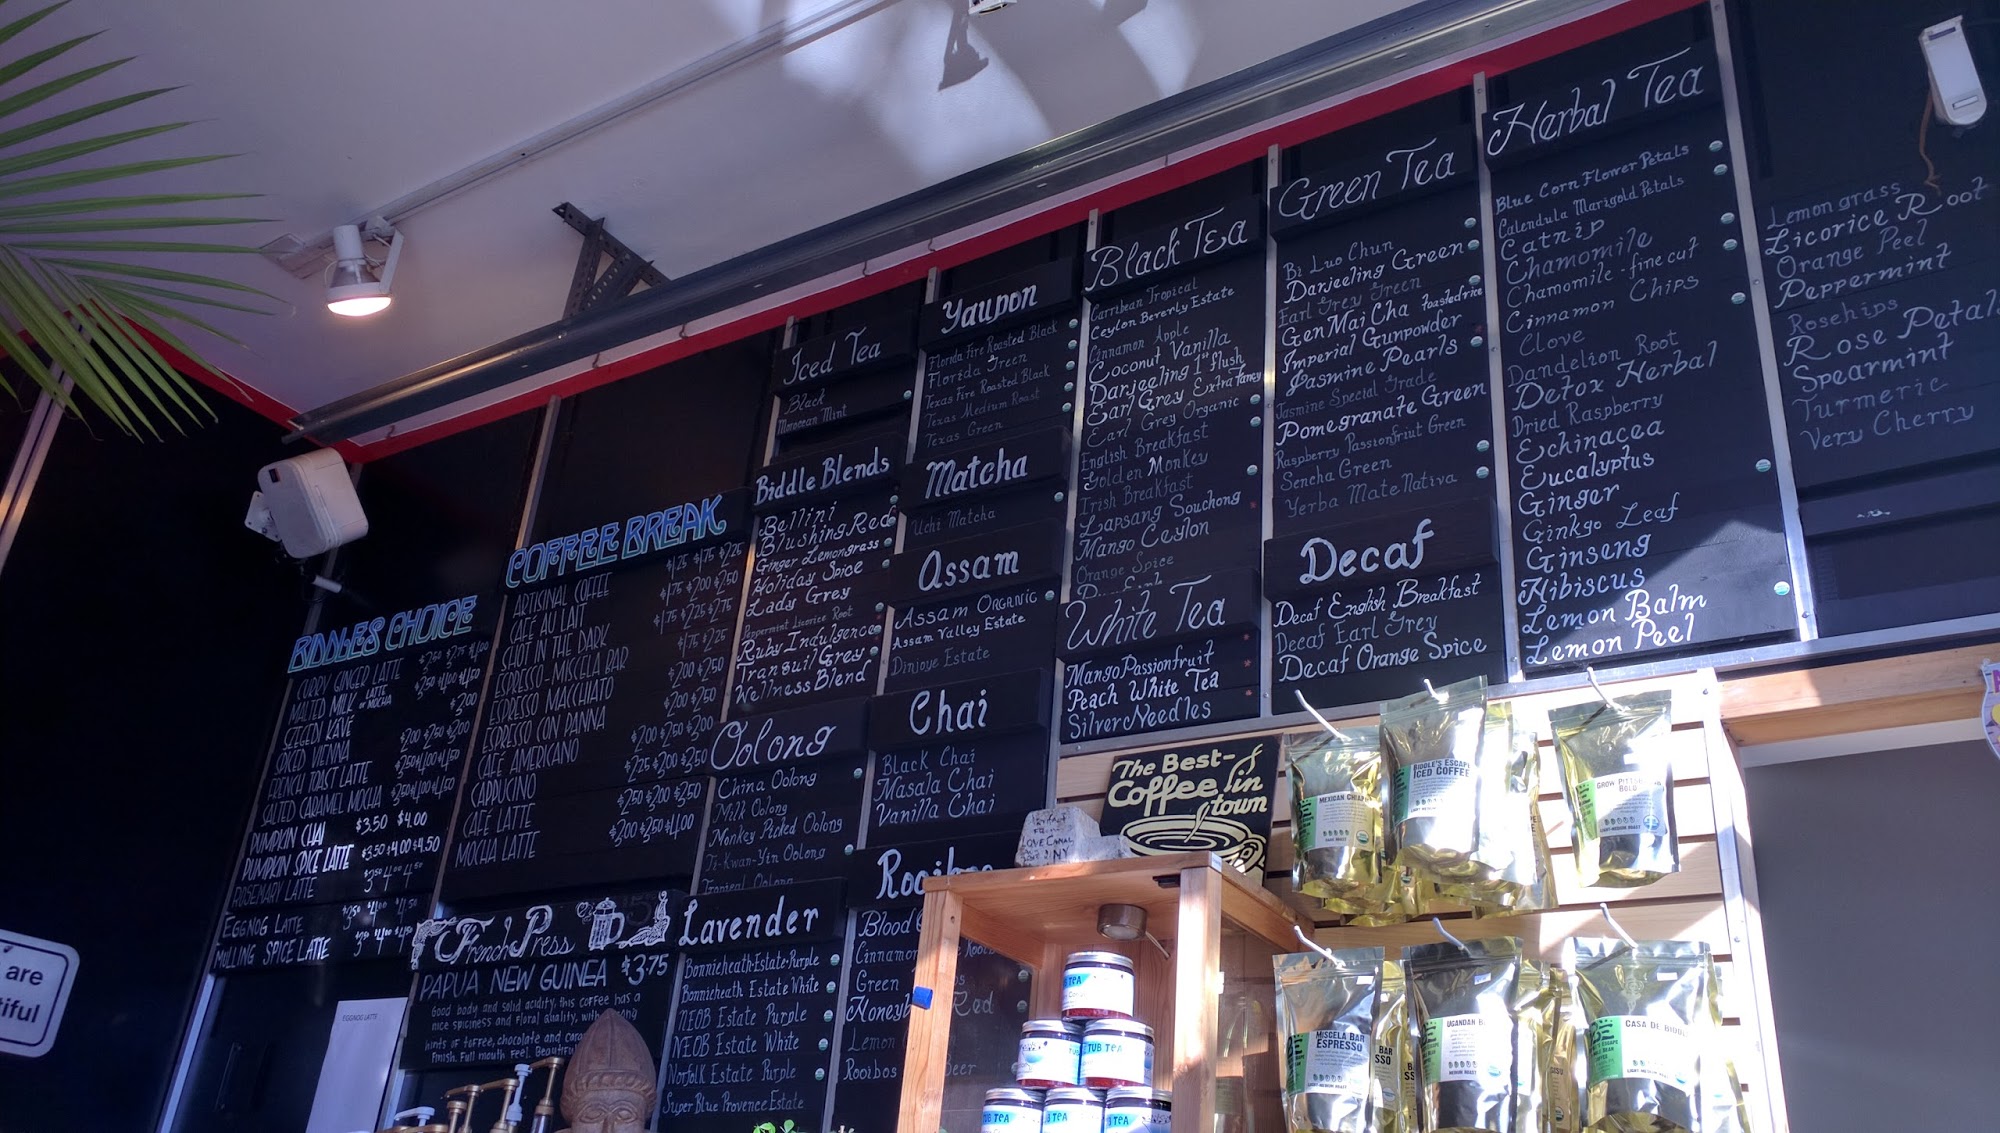 BIDDLES CHOICE
CURRY GINGER LATTE $2.50 $2.75 $4.00
MALTED MILK LATTE or MOCHA
SZEGEN KAVE $2.00
SPICED VIENNA $2.00 $2.50 $2.00
FRENCH TOAST LATTE
SALTED CARAMEL MOCHA
PUMPKIN CHAI $3.50 $4.00
PUMPKIN SPICE LATTE $3.50 $4.00 $4.50
ROSEMARY LATTE
EGGNOG LATTE
MULLING SPICE LATTE
EGGNOG LATTE
are
tiful
COFFEE BREAK
ARTISINAL COFFEE $1.25 $1.75 $2.25
CAFÉ AU LAIT $1.75 $2.00 $2.50
SHOT IN THE DARK $1.75 $2.25 $2.75
ESPRESSO - MISCELA BAR $1.75 $2.25
ESPRESSO MACCHIATO $2.00 $2.50
ESPRESSO CON PANNA $2.00 $2.50
CAFÉ AMERICANO
CAPPUCINO
CAFÉ LATTE
MOCHA LATTE
French Press
PAPUA NEW GUINEA $3.75
Good body and solid acidity, this coffee has a
nice spiciness and floral quality, with
hints of toffee, chocolate and
finish. Full mouth feel.
Iced Tea
Black
Moroccan Mint
Biddle Blends
Bellini
Blushing Red
Ginger Lemongrass
Holiday Spice
Lady Grey
Peppermint Licorice Root
Ruby Indulgence
Tranquil Grey
Wellness Blend
Oolong
China Oolong
Milk Oolong
Monkey Picked Oolong
Ti-Kwan-Yin Oolong
Tropical Oolong
Lavender
Bonnieheath Estate Purple
Bonnieheath Estate White
NEOB Estate Purple
NEOB Estate White
Norfolk Estate Purple
Super Blue Provence Estate
Yaupon
Florida Fire Roasted Black
Florida Green
Texas Fire Roasted Black
Texas Medium Roast
Texas Green
Matcha
Uchi Matcha
Assam
Assam Organic
Assam Valley Estate
Dinjoye Estate
Chai
Black Chai
Masala Chai
Vanilla Chai
Rooibos
Blood
Cinnamon
Green
Honeyb Red
Lemon
Rooibos
Black Tea
Carribean Tropical
Ceylon Beverly Estate
Cinnamon Apple
Coconut Vanilla
Darjeeling 1st flush
Earl Grey Extra fancy
Earl Grey Organic
English Breakfast
Golden Monkey
Irish Breakfast
Lapsang Souchong
Mango Ceylon
Orange Spice
White Tea
Mango Passionfruit
Peach White Tea
Silver Needles
Green Tea
Bi Luo Chun
Darjeeling Green
Earl Grey Green
Gen Mai Cha Toasted rice
Imperial Gunpowder
Jasmine Pearls
Jasmine Special Grade
Pomegranate Green
Raspberry Passionfruit Green
Sencha Green
Yerba Mate Nativa
Decaf
Decaf English Breakfast
Decaf Earl Grey
Decaf Orange Spice
Herbal Tea
Blue Corn Flower Petals
Calendula Marigold Petals
Catnip
Chamomile
Chamomile - fine cut
Cinnamon Chips
Clove
Dandelion Root
Detox Herbal
Dried Raspberry
Echinacea
Eucalyptus
Ginger
Ginkgo Leaf
Ginseng
Hibiscus
Lemon Balm
Lemon Peel
Lemongrass
Licorice Root
Orange Peel
Peppermint
Rosehips
Rose Petals
Spearmint
Turmeric
Very Cherry
The Best
Coffee in
town
LOVE CANAL
NY
MEXICAN
BIDDLE'S ESCAPE
ICED COFFEE
GROW
BOLD
MISCELA BAR
ESPRESSO
BAR
SSO
UGANDAN
CASA DE
TEA
TUB TEA
TUB TEA
TEA
TEA